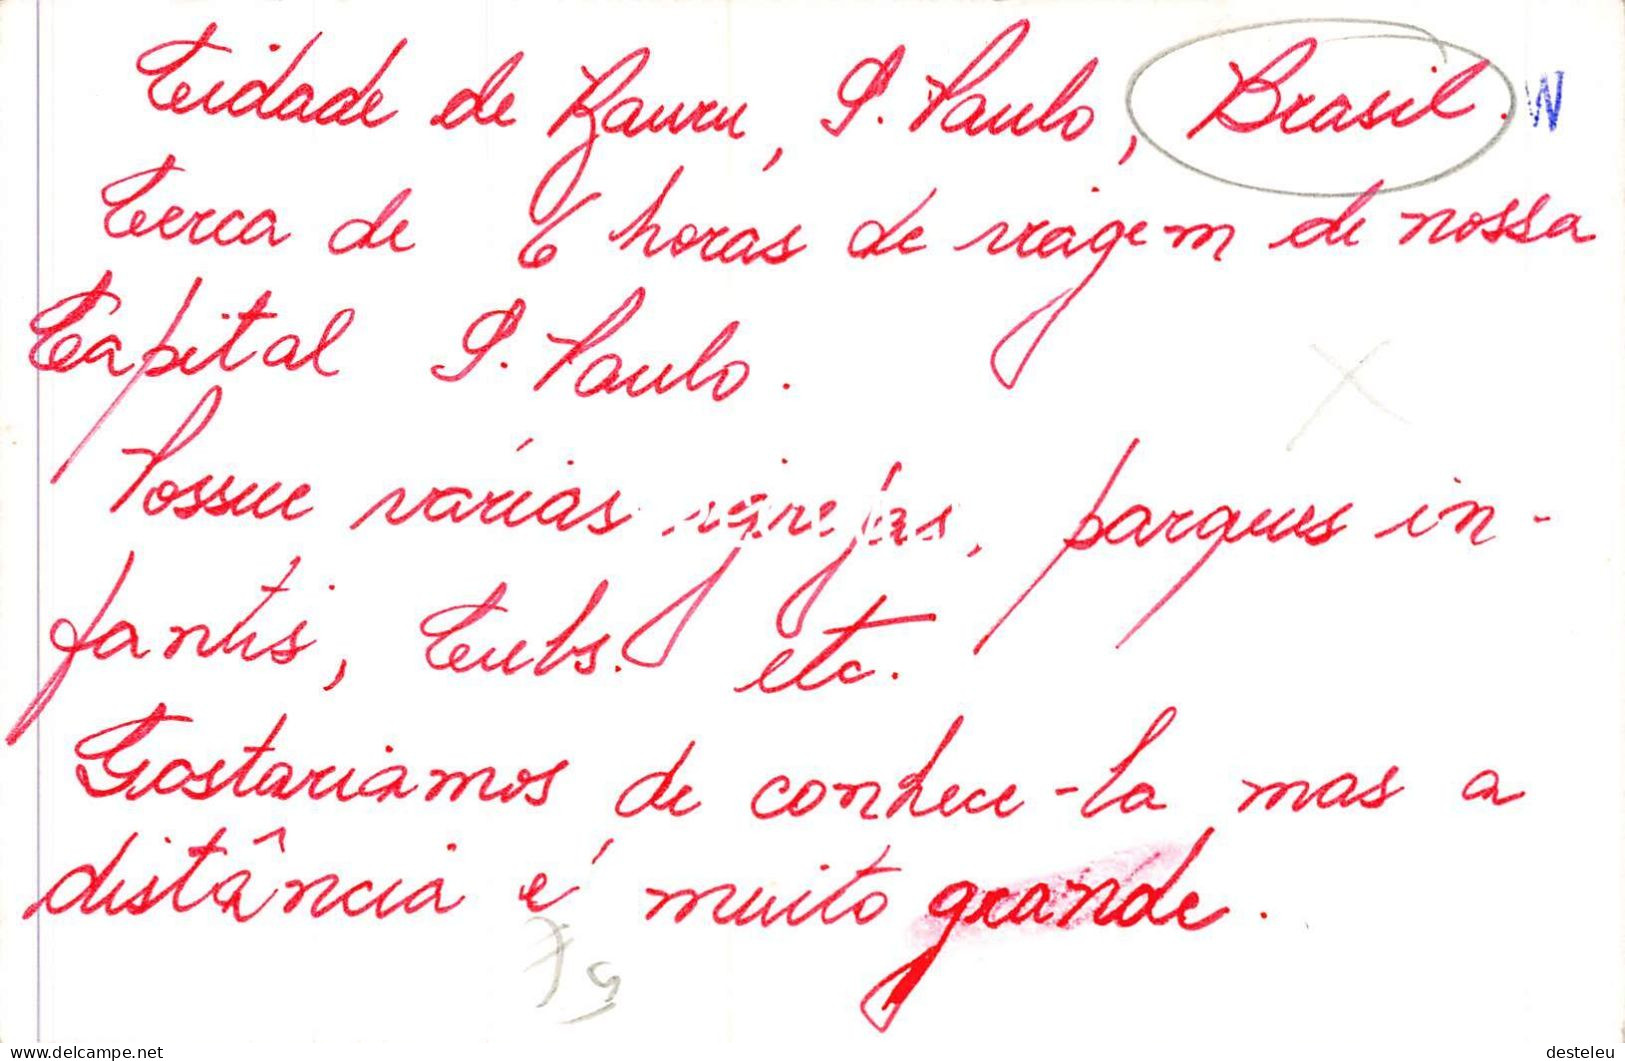 Cidade de Bauru, S. Paulo, Brasil. W
Cerca de 6 horas de viagem de nossa
Capital S. Paulo.
Possue várias igrejas, parques in-
fantis, Clubs. etc.
Gostariamos de conhece-la mas a
distância é muito grande.
delcampe.net
desteleu